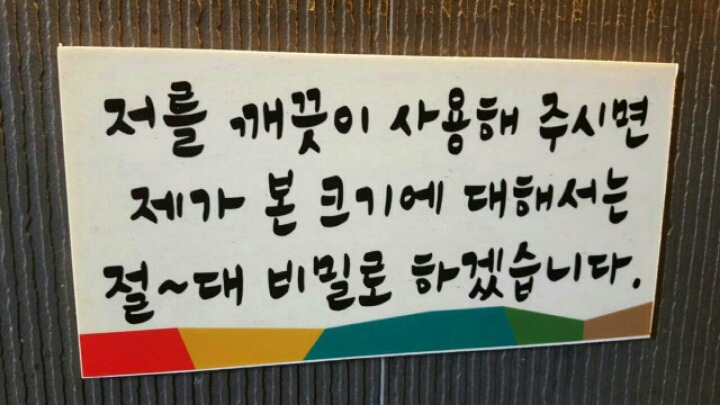 저를 깨끗이 사용해 주시면
제가 본 크기에 대해서는
절~대 비밀로 하겠습니다.